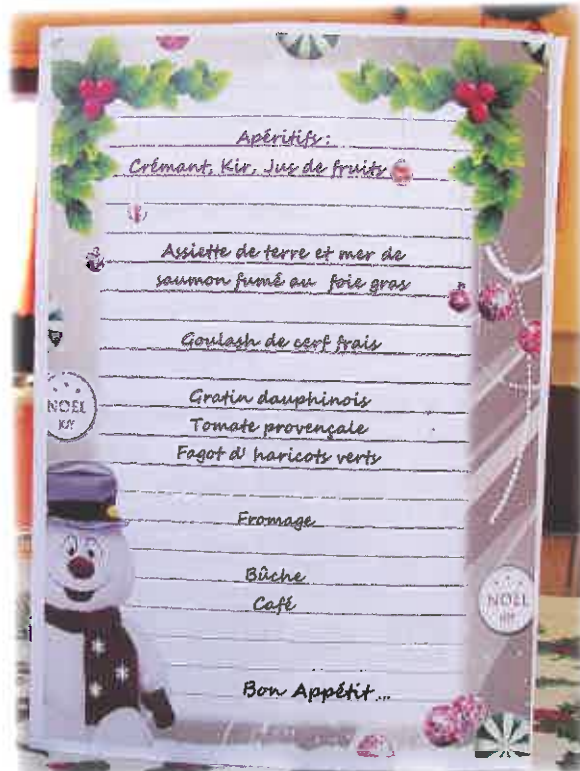 Apéritifs :
Crémant, Kir, Jus de fruits
Assiette de terre et mer de
saumon fumé au foie gras
Goulash de cerf frais
Gratin dauphinois
NOËL
Tomate provençale
Fagot d' haricots verts
Fromage
Bûche
Café
NOËL
Bon Appétit...